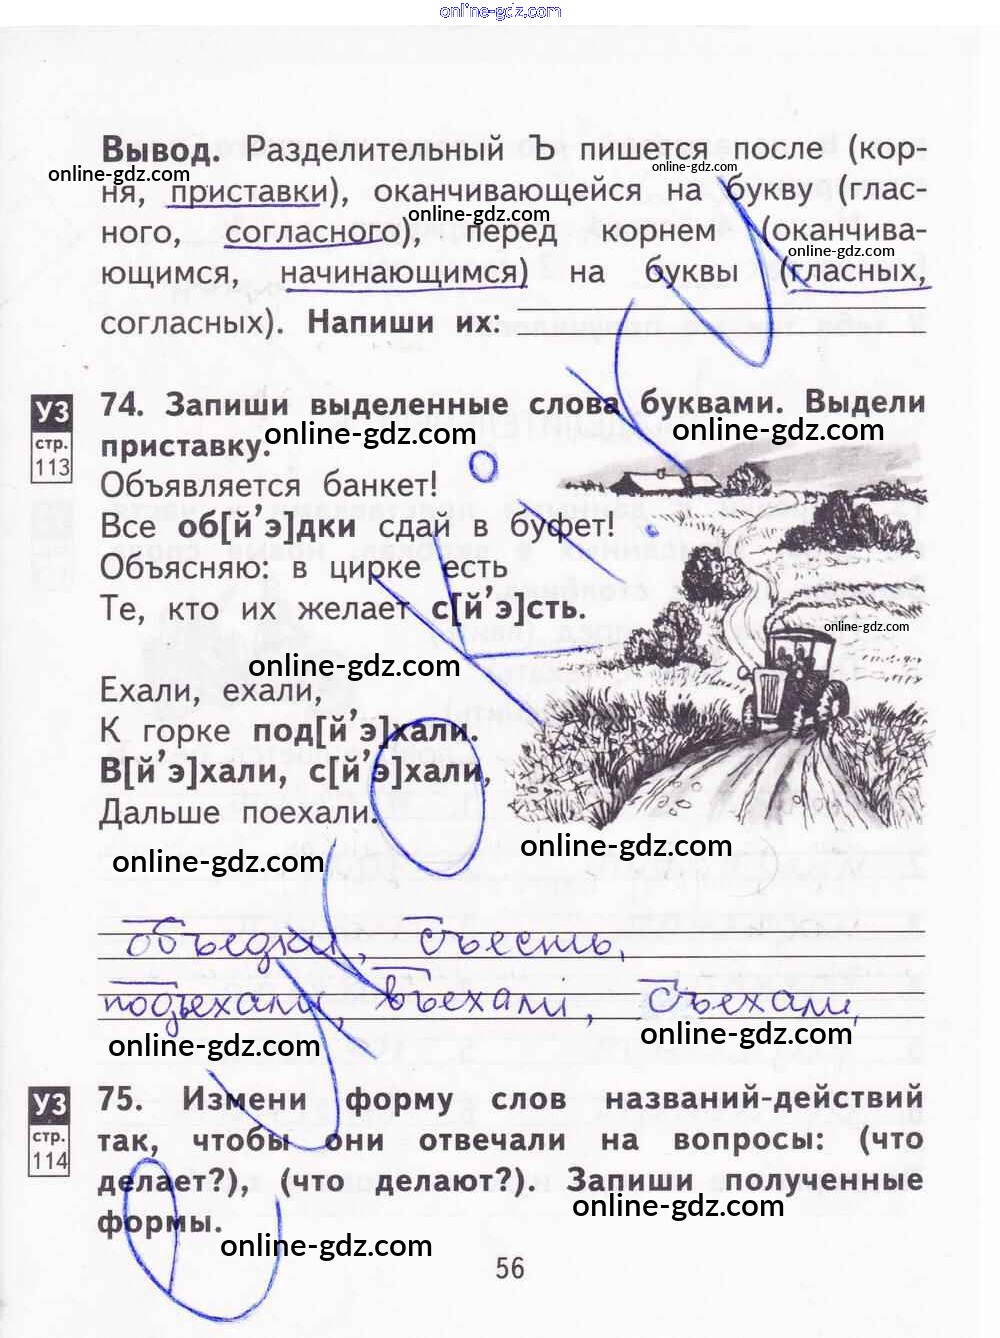 online-gdz.com
Вывод. Разделительный Ъ пишется после (кор-
online-gdz.com
online-gdz.com
ня, приставки), оканчивающейся на букву (глас-
online-gdz.com
ного, согласного), перед корнем (оканчива-
online-gdz.com
ющимся, начинающимся) на буквы (гласных,
согласных). Напиши их:
УЗ
стр.
113
74. Запиши выделенные слова буквами. Выдели
online-gdz.com
online-gdz.com
приставку.
Объявляется банкет!
Все об[й’э]дки сдай в буфет!
Объясняю: в цирке есть
Те, кто их желает с[й’э]сть.
online-gdz.com
online-gdz.com
Ехали, ехали,
К горке под[й’э]хали.
В[й’э]хали, с[й’э]хали,
Дальше поехали.
online-gdz.com
online-gdz.com
объедки, съесть,
подъехали, въехали, съехали,
online-gdz.com
online-gdz.com
УЗ
стр.
114
75. Измени форму слов названий-действий
так, чтобы они отвечали на вопросы: (что
делает?), (что делают?). Запиши полученные
online-gdz.com
формы.
online-gdz.com
56